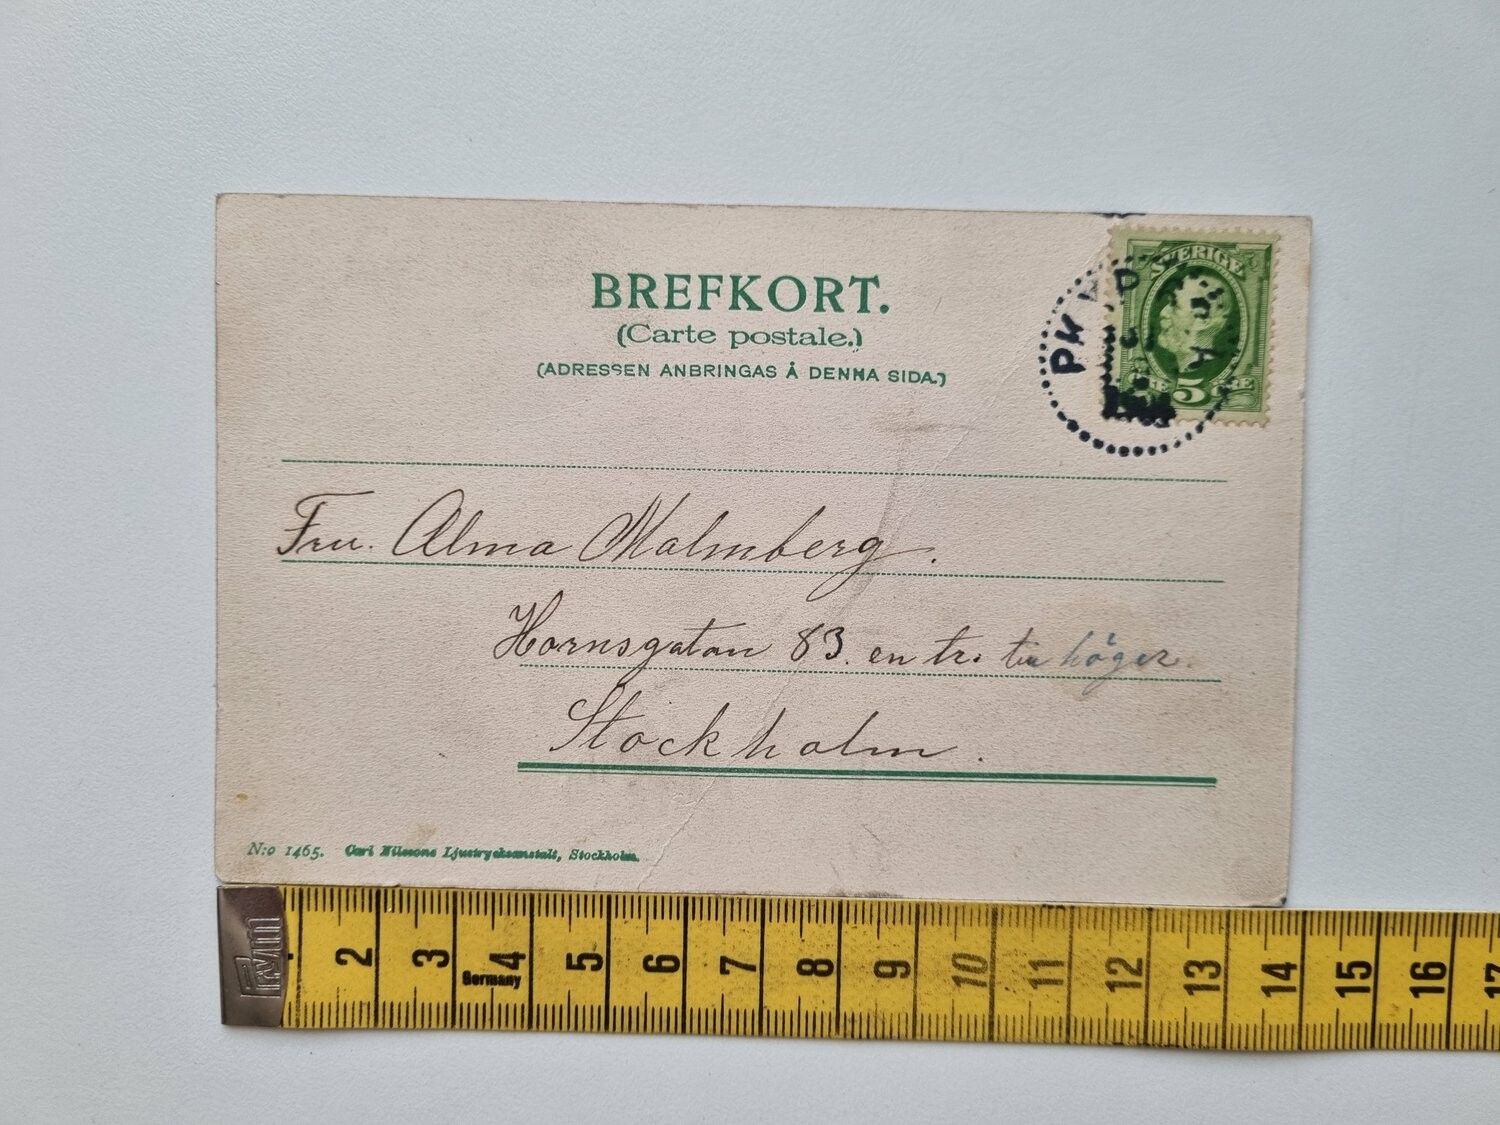 BREFKORT.
(Carte postale.)
(ADRESSEN ANBRINGAS Å DENNA SIDA.)
SVERIGE
5 ÖRE
PKXP
Fru. Alma Malmberg.
Hornsgatan 83. en tr. till höger.
Stockholm.
N:o 1465. Carl Nilssons Ljustrycksanstalt, Stockholm.
Prym
Germany
2 3 4 5 6 7 8 9 10 11 12 13 14 15 16 17